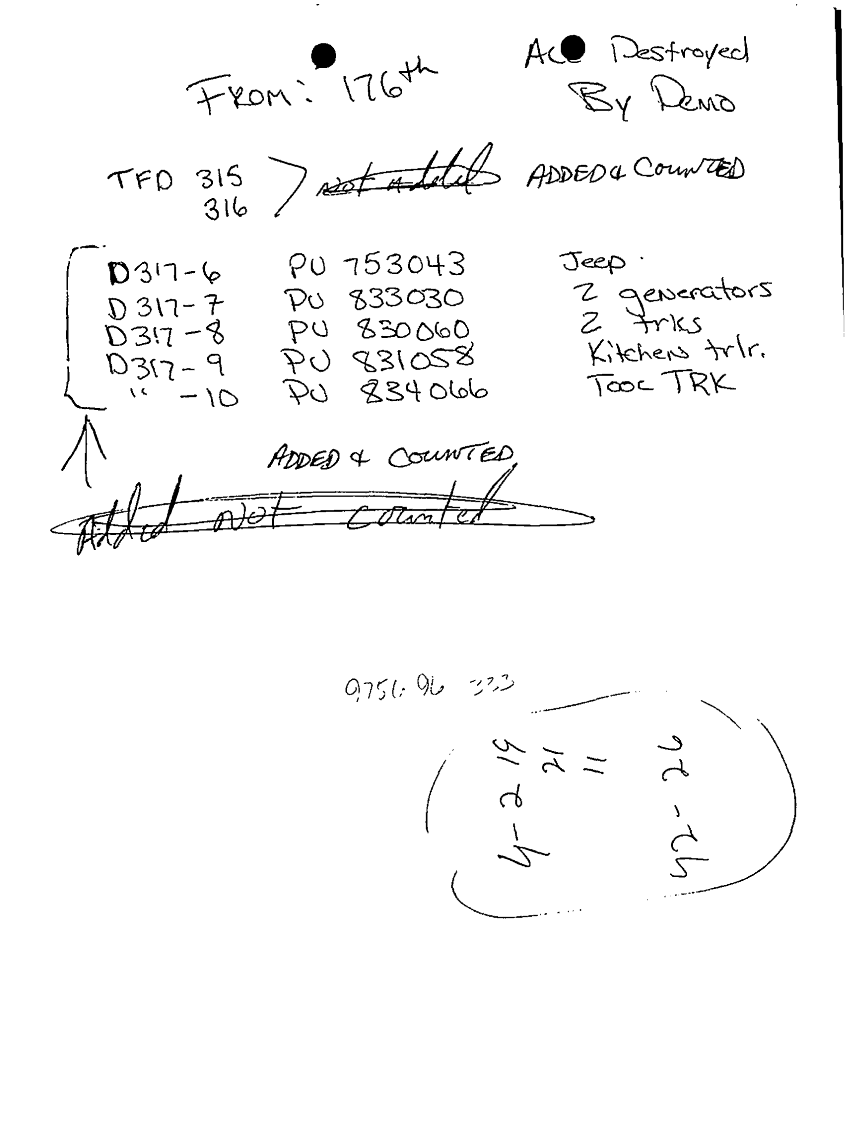 From: 176th
Destroyed
By Demo
TFD 315
316
Not Added ADDED & COUNTED
D317-6 PU 753043 Jeep
D317-7 PU 833030 2 generators
D317-8 PU 830060 2 trks
D317-9 PU 831058 Kitchen trlr.
" -10 PU 834066 TRK
ADDED & COUNTED
Added Not Counted